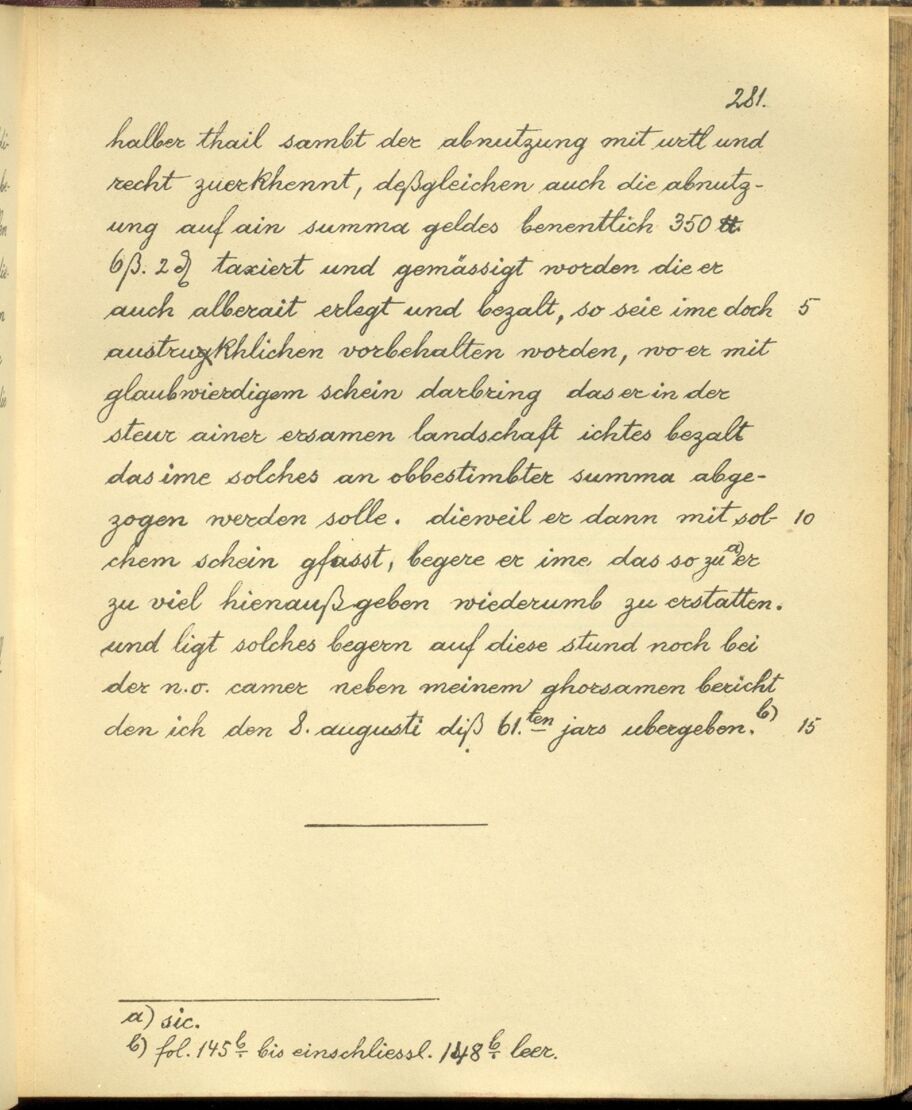 281.
halber thail sambt der abnutzung mit urtl und
recht zuerkhennt, deßgleichen auch die abnutz-
ung auf ain summa geldes benentlich 350 ℔.
6 ß. 2 ₰ taxiert und gemässigt worden die er
auch alberait erlegt und bezalt, so seie ime doch 5
austrugkhlichen vorbehalten worden, wo er mit
glaubwierdigem schein darbring das er in der
steur ainer ersamen landschaft ichtes bezalt
das ime solches an obbestimbter summa abge-
zogen werden solle. dieweil er dann mit sol- 10
chem schein gfasst, begere er ime das so zu a) er
zu viel hienauß geben wiederumb zu erstatten.
und ligt solches begern auf diese stund noch bei
der n.o. camer neben meinem ghorsamen bericht
den ich den 8. augusti diß 61.ten jars ubergeben. b) 15
a) sic.
b) fol. 145 b. bis einschliessl. 148 b. leer.